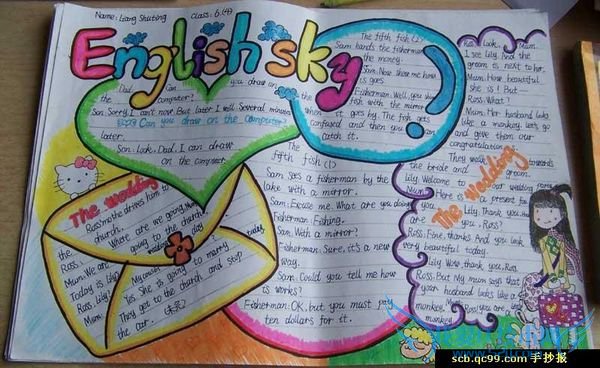 Name: Liang Shuting Class: 6.(4)
English sky
Dad. Can you draw on
the computer?
Son: Sorry, I can't now. But later I will. Several minutes
later.
Can you draw on the computer?
Son: Look, Dad. I can draw
on the computer.
The fifth fish (2)
Sam hands the fisherman
the money.
Sam: Now show me how
is goes.
Fisherman: Well, you show
fish with the mirror
when it goes by. The fish gets
confused and then you can
catch it.
The wedding
Ross' mo the drives him to
the church.
Ross: Where are we going, Mum?
Mum: We are going to the church.
Today is Lily's wedding day.
Ross: Lily?
Mum: Yes. She is going to marry
They get to the church and stop
the car.
The
fifth fish (1)
Sam sees a fisherman by the
lake with a mirror.
Sam: Excuse me. What are you doing
Fisherman: Fishing.
Sam: With a mirror?
Fisherman: Sure, it's a new
way.
Sam: Could you tell me how
is works?
Fisherman: OK, but you must pay
ten dollars for it.
The wedding
Ross: Look, Mum.
I see lily. And the
groom is next to her.
Mum: How beautiful
she is! But—
Ross: What?
Mum: Her husband looks
like a monkey. Let's go
and give them our
congratulation.
They walk towards
the bride and groom.
Lily: Welcome to our wedding
Mum: Here is a present for
Lily: Thank you. How
are you, Ross?
Ross: Fine, thanks. And you look
very beautiful today.
Lily: Wow, thank you, Ross.
Ross: But My mum says that
your husband looks like a
monkey.
Mum: Ross, you are a
monkey.
scb.qc99.com 手抄报